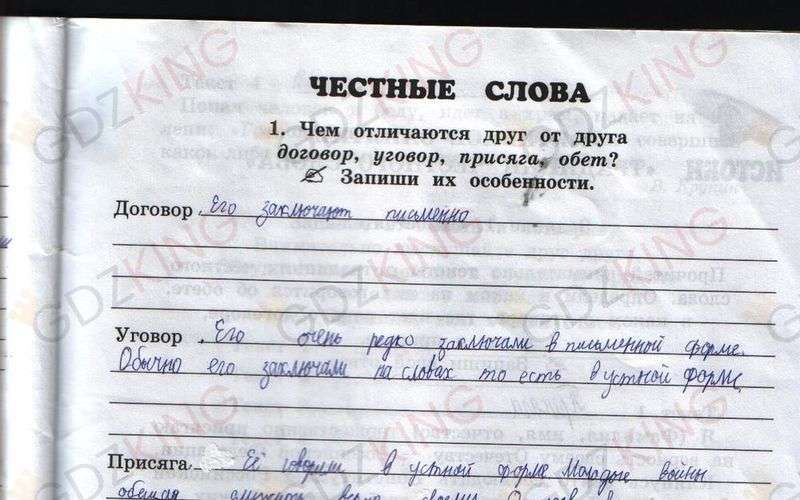 ЧЕСТНЫЕ СЛОВА
1. Чем отличаются друг от друга
договор, уговор, присяга, обет?
Запиши их особенности.
Договор Его заключают письменно
Уговор Его очень редко заключали в письменной форме.
Обычно его заключали на словах то есть в устной форме,
Присяга Её говорили в устной форме Молодые войны
обещая служить
GDZKING